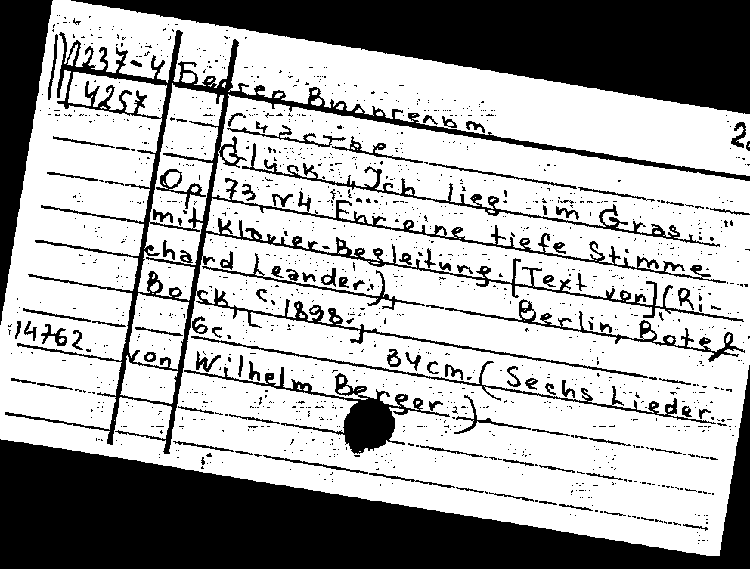 М237-4 Бергер Вильгельм. 2.
4257
Счастье
Glück. „Ich lieg' im Gras..."
Op. 73, N4. Für eine tiefe Stimme
mit Klavier-Begleitung. [Text von] (Ri-
chard Leander.), Berlin, Bote &
Bock, c. [1898.]
6c. 34cm. (Sechs Lieder
14762. von Wilhelm Berger).